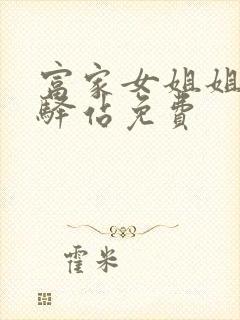 富家女姐姐
驿占免费
霍米